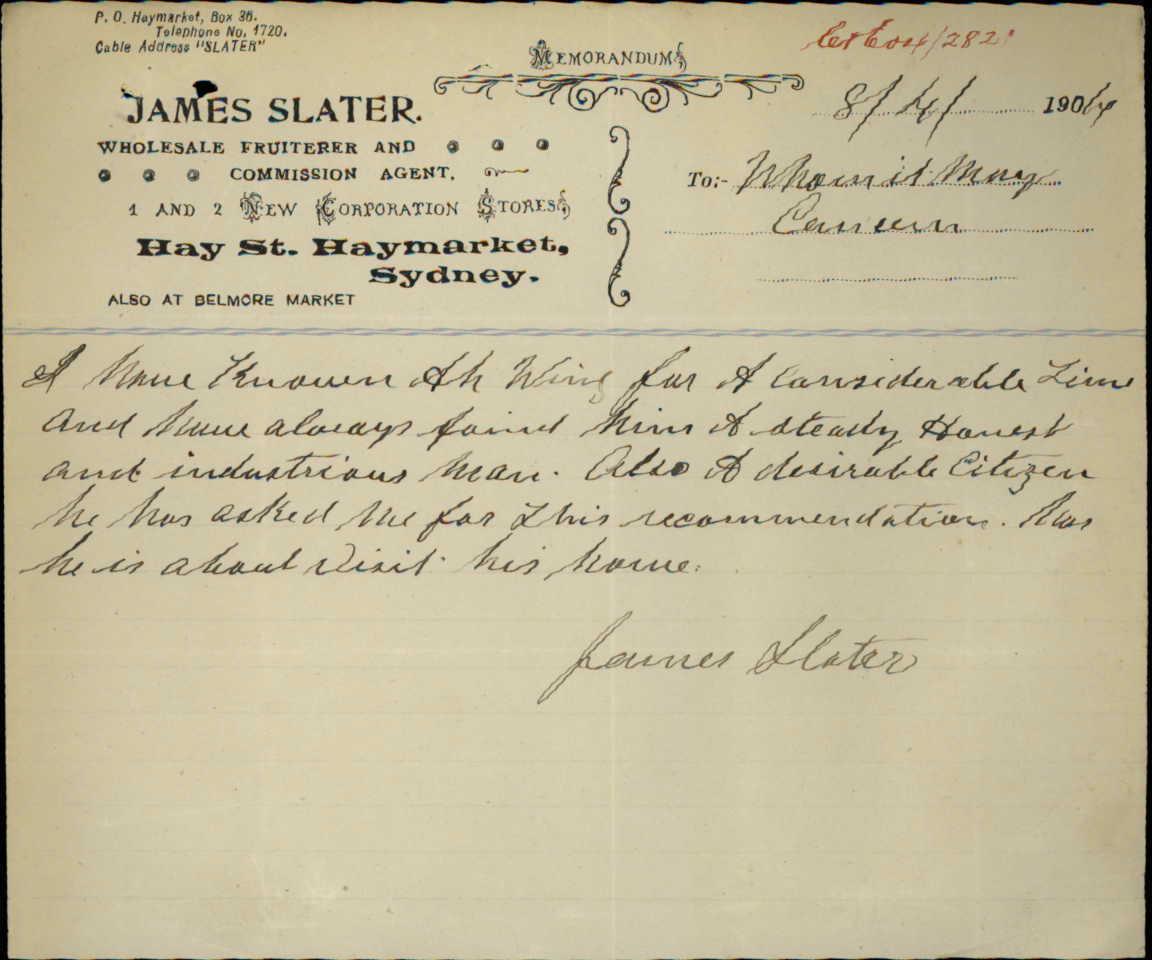 P. O. Haymarket, Box 36.
Telephone No. 1720.
Cable Address "SLATER"
MEMORANDUM
JAMES SLATER.
WHOLESALE FRUITERER AND
COMMISSION AGENT.
1 AND 2 NEW CORPORATION STORES
Hay St. Haymarket,
Sydney.
ALSO AT BELMORE MARKET
8/4/ 1904
To:- Whom it May
Concern
I have Known Ah Wing for A Considerable Time
and have always found him A steady Honest
and industrious Man. Also A desirable Citizen
he has asked me for this recommendation. has
he is about visit his home.
James Slater